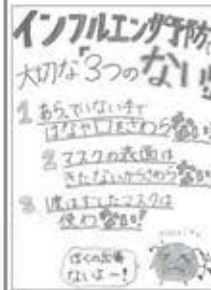 インフルエンザ予防で
大切な「3つのない」!!
1 あらっていない手で
はなや口をさわらない
2 マスクの表面は
きたないからさわらない
3 1度はずしたマスクは
使わない!
ぼくの出番
ないよ〜!